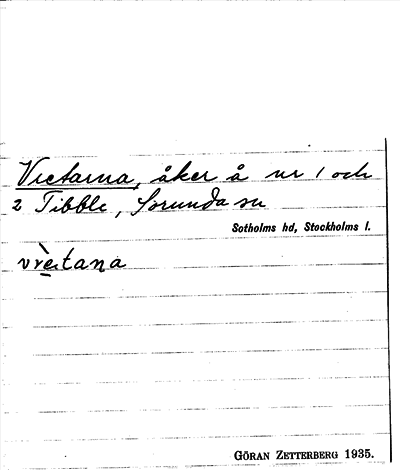 Vretarna, åker å nr 1 och
2 Tibble, Sorunda sn
Sotholms hd, Stockholms l.
vrètana
GÖRAN ZETTERBERG 1935.